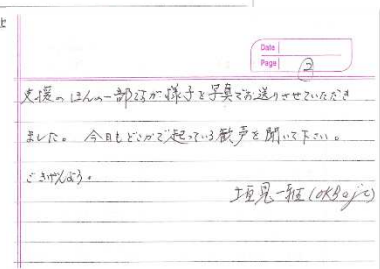 Date
Page 3
支援のほんの一部ですが様子を写真でお送りさせていただき
ました。今日もどこかで起っている歓声を聞いて下さい。
ごきげんよう。
垣見一雅(OKBaji)